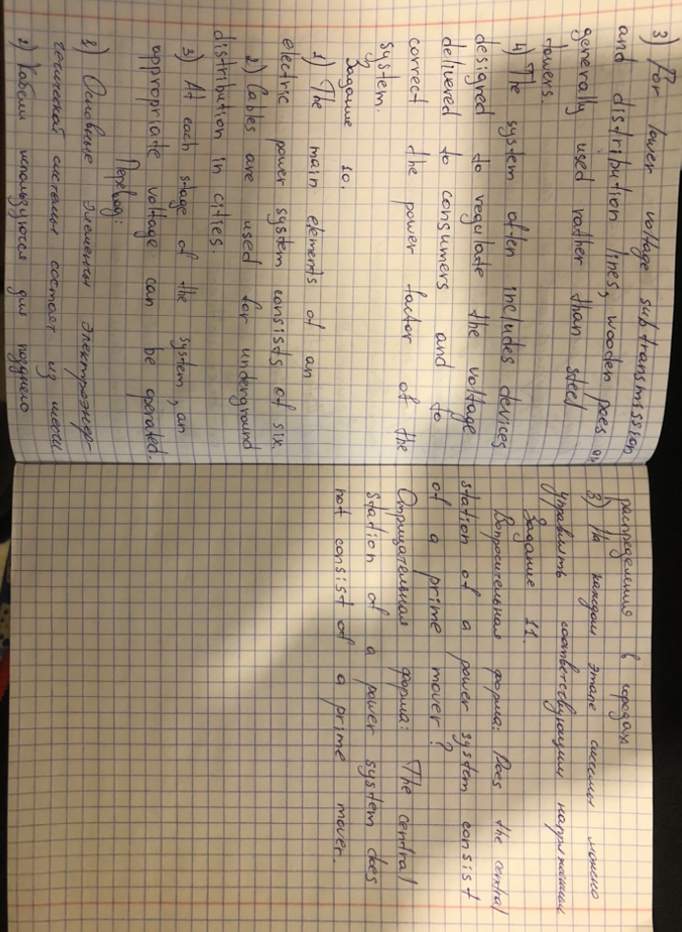 3) For lower voltage subtransmission
and distribution lines, wooden poes are
generally used rather than steel
towers.
4) The system often includes devices
designed to regulate the voltage
delivered to consumers and to
correct the power factor of the
system.
Задание 10.
1) The main elements of an
electric power system consists of six.
2) Cables are used for underground
distribution in cities.
3) At each stage of the system, an
appropriate voltage can be operated.
Перевод:
1) Основные элементы электроэнер-
гетической системы состоят из шести
2) Кабели используются для
распределения в городах
3) На каждом этапе системы можно
управлять соответствующим напряжением
Задание 11.
Вопросительная форма: Does the central
station of a power system consist
of a prime mover?
Отрицательная форма: The central
station of a power system does
not consist of a prime mover.